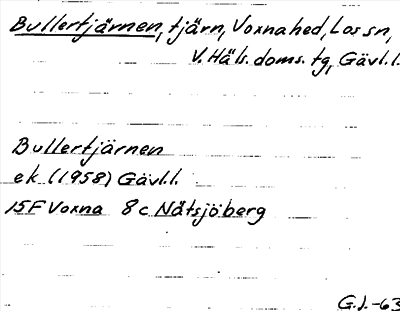 Bullertjärnen, tjärn, Voxnahed, Los sn,
V. Häls. doms. tg, Gävl.l.
Bullertjärnen
ek (1958) Gävl.l.
15F Voxna 8c Nätsjöberg
G.J.-63